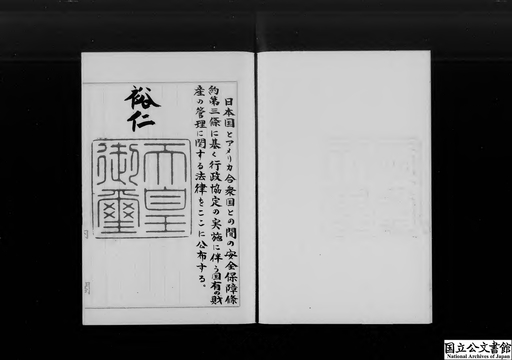 日本国とアメリカ合衆国との間の安全保障條
約第三條に基く行政協定の実施に伴う国有の財
産の管理に関する法律をここに公布する。
裕仁
天皇
御璽
国立公文書館
National Archives of Japan